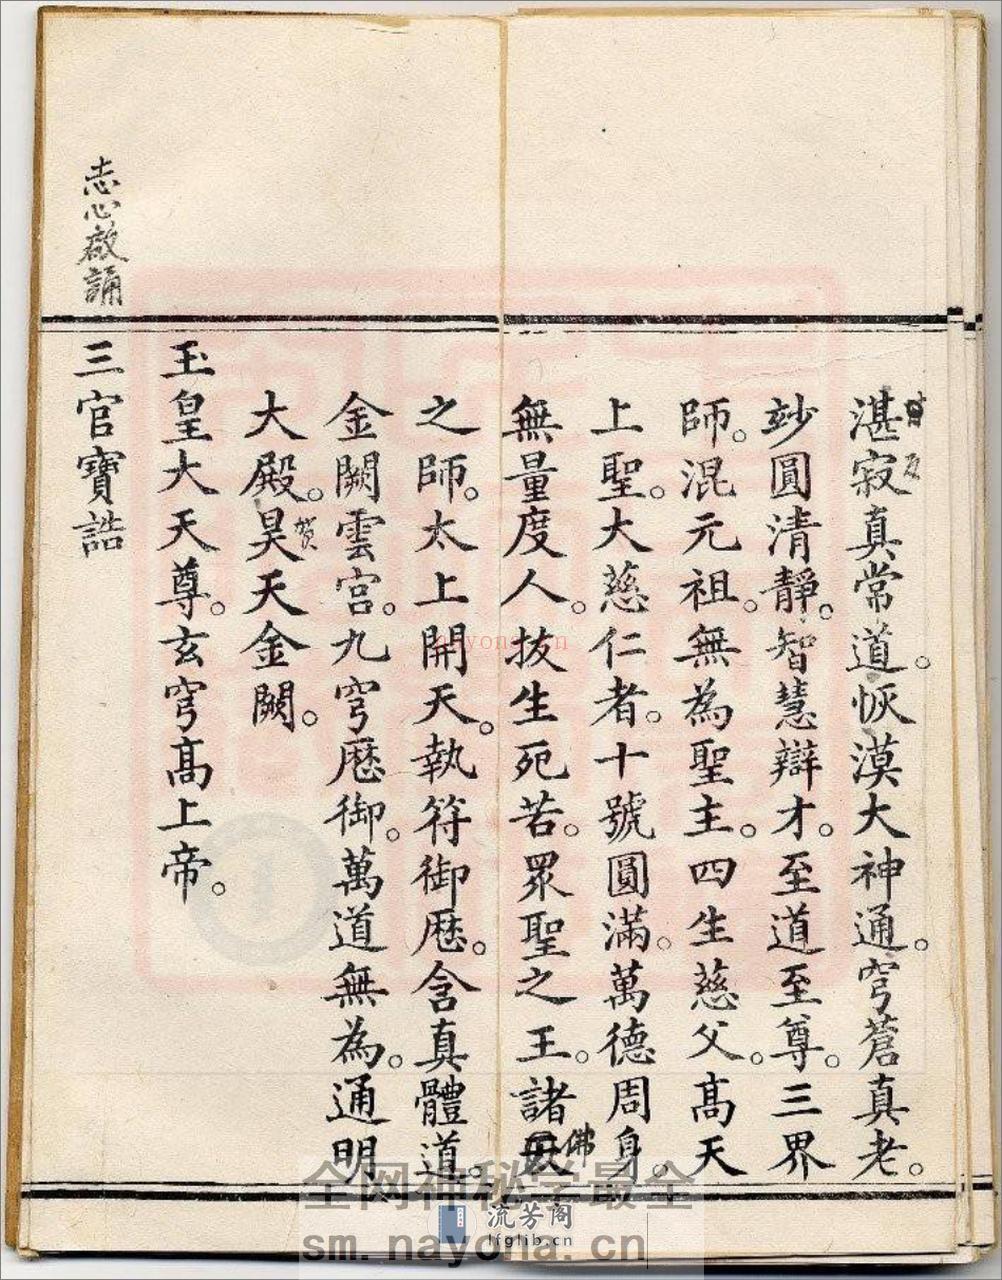 湛寂真常道。恢漠大神通。穹蒼真老。
玅圓清靜。智慧辯才。至道至尊。三界
師。混元祖。無為聖主。四生慈父。高天
上聖。大慈仁者。十號圓滿。萬德周身。
無量度人。拔生死苦。眾聖之王。諸佛
之師。太上開天。執符御歷。含真體道。
金闕雲宮。九穹歷御。萬道無為。通明
大殿。昊天金闕。
賀
玉皇大天尊。玄穹高上帝。
志心啟誦
三官寶誥
nayona.cn
全网神秘学最全
流芳阁
lfglib.cn
sm.nayona.cn